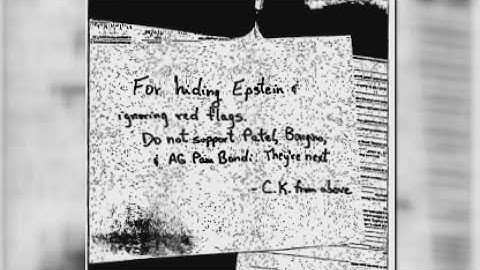 For hiding Epstein &
ignoring red flags.
Do not support Patel, Bongino,
& AG Pam Bondi. They're next
- C.K. from above